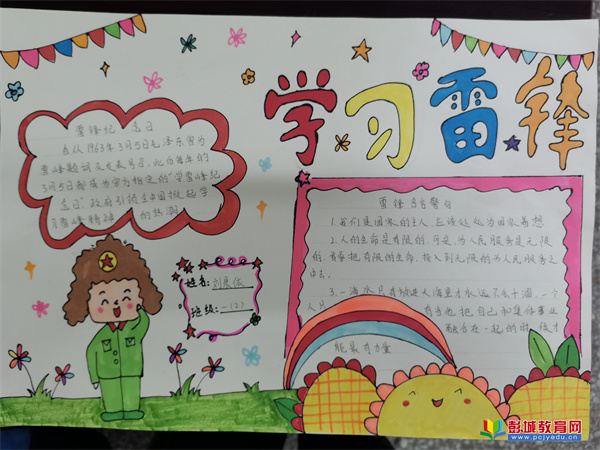 学习雷锋
雷锋纪念日
自从1963年3月5日毛泽东同为
雷锋题词发表后，此后每年的
3月5日都成为官方指定的"学雷锋纪
念日"政府引领全中国掀起学
习雷锋精神的热潮
姓名:
班级:一(2)
雷锋名言警句
1.我们是国家的主人，应该处处为国家着想
2.人的生命是有限的，可是，为人民服务是无限
的，我要把有限的生命，投入到无限的为人民服务之
中去。
3.一滴水只有放进大海里才永远不会干涸，一个
人只有当他把自己和集体事业
融合在一起的时候才
能最有力量
彭城教育网
www.pcjyedu.cn